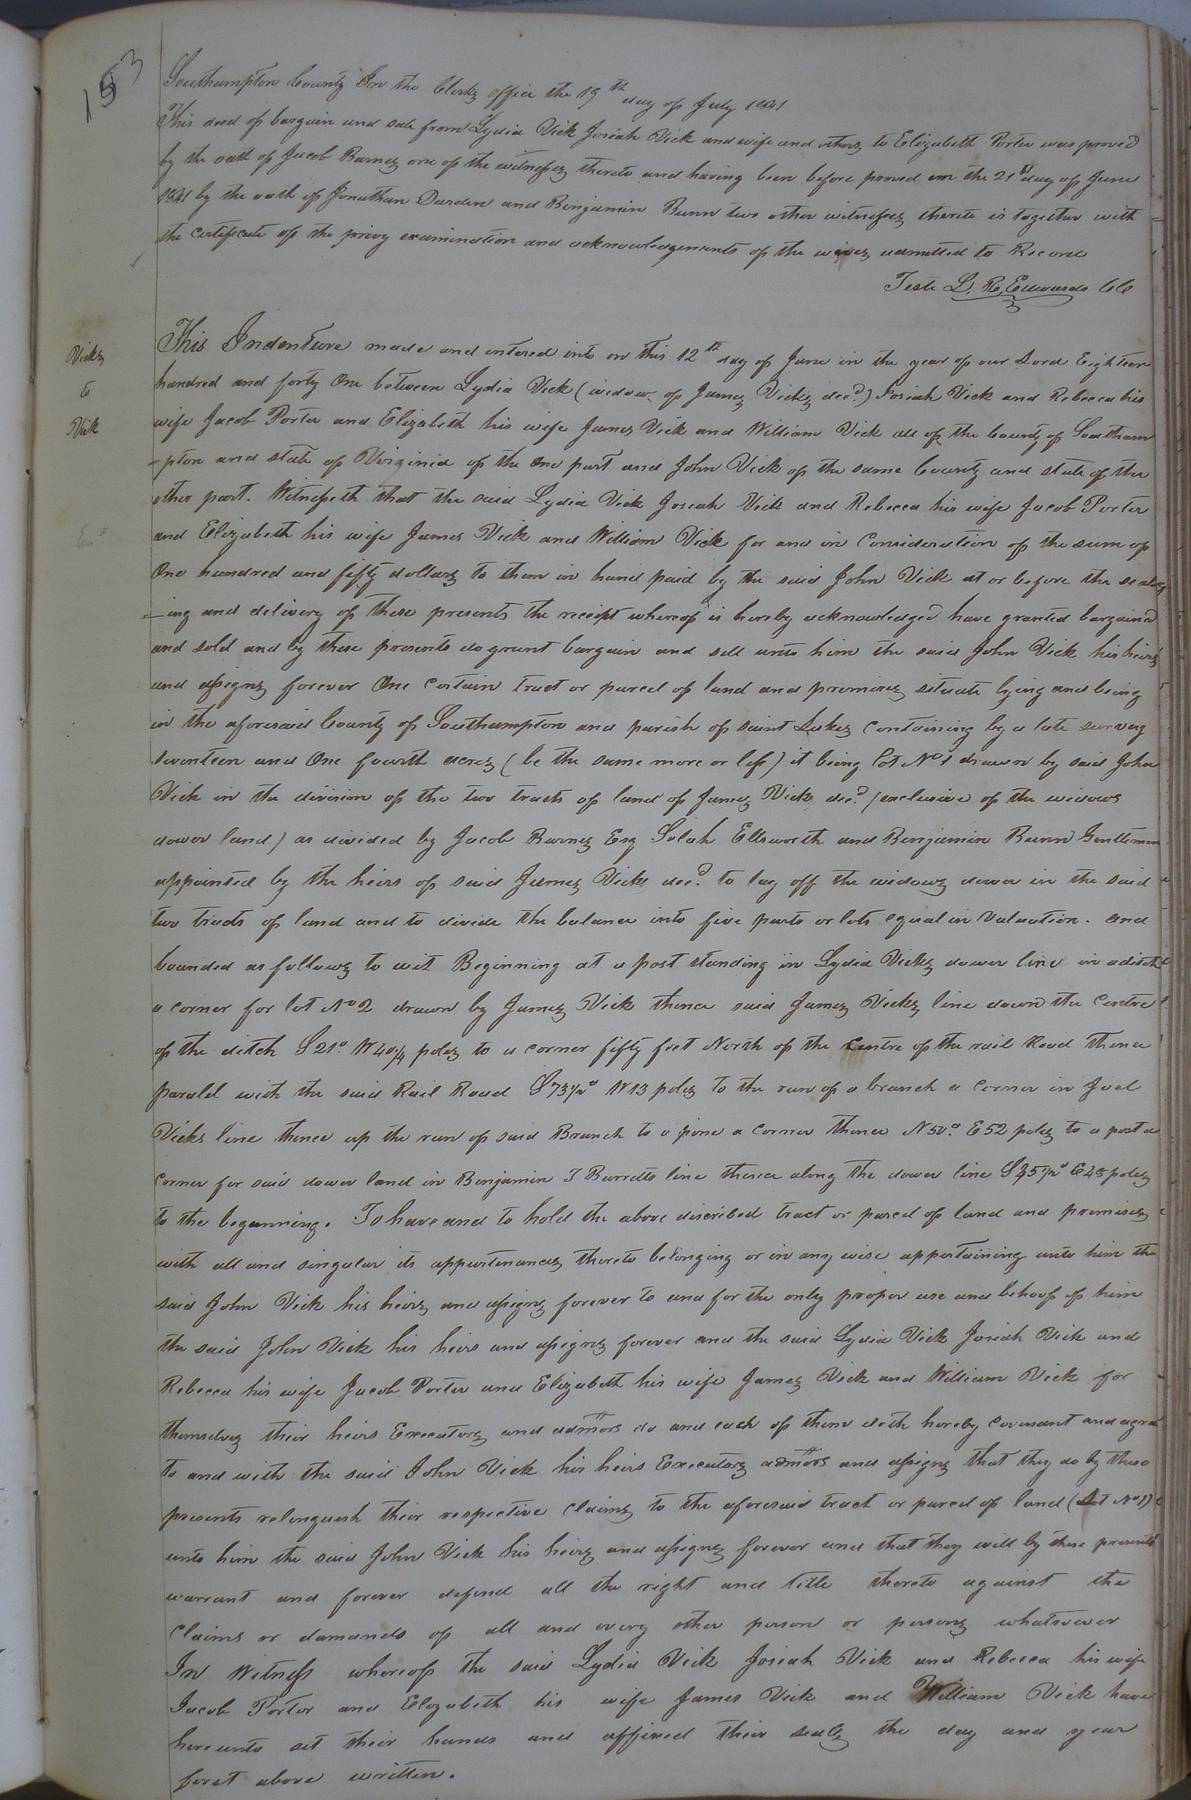 153
Southampton County In the Clerks office the 19th day of July 1841
This deed of bargain and sale from Lydia Vick Josiah Vick and wife and others to Elizabeth Porter was proved
by the oath of Jacob Barnes one of the witnesses thereto and having been before proved on the 21st day of June
1841 by the oath of Jonathan Darden and Benjamin Bunn two other witnesses thereto is together with
the certificate of the privy examination and acknowledgements of the wives admitted to Record
Teste L. R. Edwards CC
Vicks
to
Vick
This Indenture made and entered into on this 12th day of June in the year of our Lord Eighteen
hundred and forty One between Lydia Vick (widow of James Vicks decd) Josiah Vick and Rebecca his
wife Jacob Porter and Elizabeth his wife James Vick and William Vick all of the County of Southam
-pton and state of Virginia of the One part and John Vick of the same County and state of the
other part. Witnesseth that the said Lydia Vick Josiah Vick and Rebecca his wife Jacob Porter
and Elizabeth his wife James Vick and William Vick for and in Consideration of the sum of
One hundred and fifty dollars to them in hand paid by the said John Vick at or before the seal
-ing and delivery of these presents the receipt whereof is hereby acknowledged have granted bargained
and sold and by these presents do grant bargain and sell unto him the said John Vick his heirs
and assigns forever One certain tract or parcel of land and premises situate lying and being
in the aforesaid County of Southampton and parish of saint Lukes Containing by a late survey
seventeen and One fourth acres (be the same more or less) it being lot No 1 drawn by said John
Vick in the division of the two tracts of land of James Vicks decd. (exclusive of the widows
dower land) as divided by Jacob Barnes Esq Selah Ellsworth and Benjamin Bunn Gentlemen
appointed by the heirs of said James Vicks decd. to lay off the widows dower in the said
two tracts of land and to divide the balance into five parts or lots equal in Valuation. and
bounded as follows to wit Beginning at a post standing in Lydia Vicks dower line in a ditch
a corner for lot No 2 drawn by James Vick thence said James Vicks line down the Centre
of the ditch S 21° W 40 1/4 poles to a corner fifty feet North of the Centre of the rail Road thence
paralel with the said Rail Road S 73 1/2° W 13 poles to the run of a branch a Corner in Joel
Vicks line thence up the run of said Branch to a pine a corner thence N 50° E 52 poles to a post a
corner for said dower land in Benjamin T Barretts line thence along the dower line S 35 1/2° E 28 poles
to the beginning. To have and to hold the above discribed tract or parcel of land and premises
with all and singular its appurtenances thereto belonging or in any wise appertaining unto him the
said John Vick his heirs and assigns forever to and for the only proper use and behoof of him
the said John Vick his heirs and assigns forever and the said Lydia Vick Josiah Vick and
Rebecca his wife Jacob Porter and Elizabeth his wife James Vick and William Vick for
themselves their heirs Executors and admors do and each of them doth hereby covenant and agree
to and with the said John Vick his heirs Executors admors and assigns that they do by these
presents relenquesh their respective Claims to the aforesaid tract or parcel of land (Lot No 1)
unto him the said John Vick his heirs and assigns forever and that they will by these presents
warrant and forever defend all the right and title thereto against the
Claims or demands of all and every other person or persons whatsoever
In Witness whereof the said Lydia Vick Josiah Vick and Rebecca his wife
Jacob Porter and Elizabeth his wife James Vick and William Vick have
hereunto set their hands and affixed their seals the day and year
first above written.